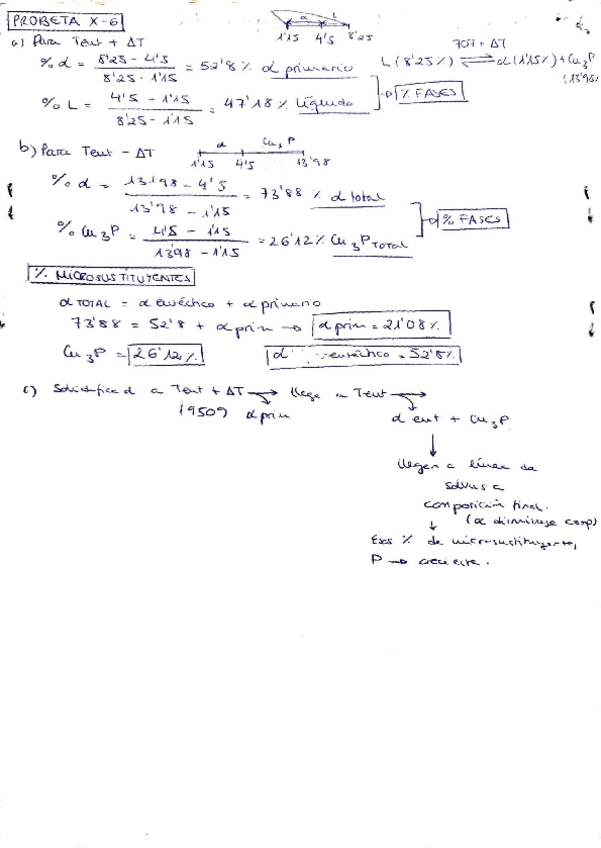 PROBETA X-6
a) Para Teut + ΔT
α L
1'15 4'5 8'25
707 + ΔT
L (8'25%) ⇌ α (1'15%) + Cu3P (13'98%)
% α = (8'25 - 4'5) / (8'25 - 1'15) = 52'8 % α primario
% L = (4'5 - 1'15) / (8'25 - 1'15) = 47'18 % líquido
→ % FASES
b) Para Teut - ΔT
α Cu3P
1'15 4'5 13'98
% α = (13'98 - 4'5) / (13'98 - 1'15) = 73'88 % α total
% Cu3P = (4'5 - 1'15) / (13'98 - 1'15) = 26'12 % Cu3P TOTAL
→ % FASES
% MICROSUSTITUYENTES
α TOTAL = α eutéctico + α primario
73'88 = 52'8 + α prim → α prim = 21'08 %
Cu3P = 26'12 %
α eutéctico = 52'8 %
c) Solidifica α a Teut + ΔT → llega a Teut →
α prim
α eut + Cu3P
↓
llegan a línea de
solvus a
composición final.
(α disminuye comp)
↓
Esos % de microsustituyente,
P → creciente.